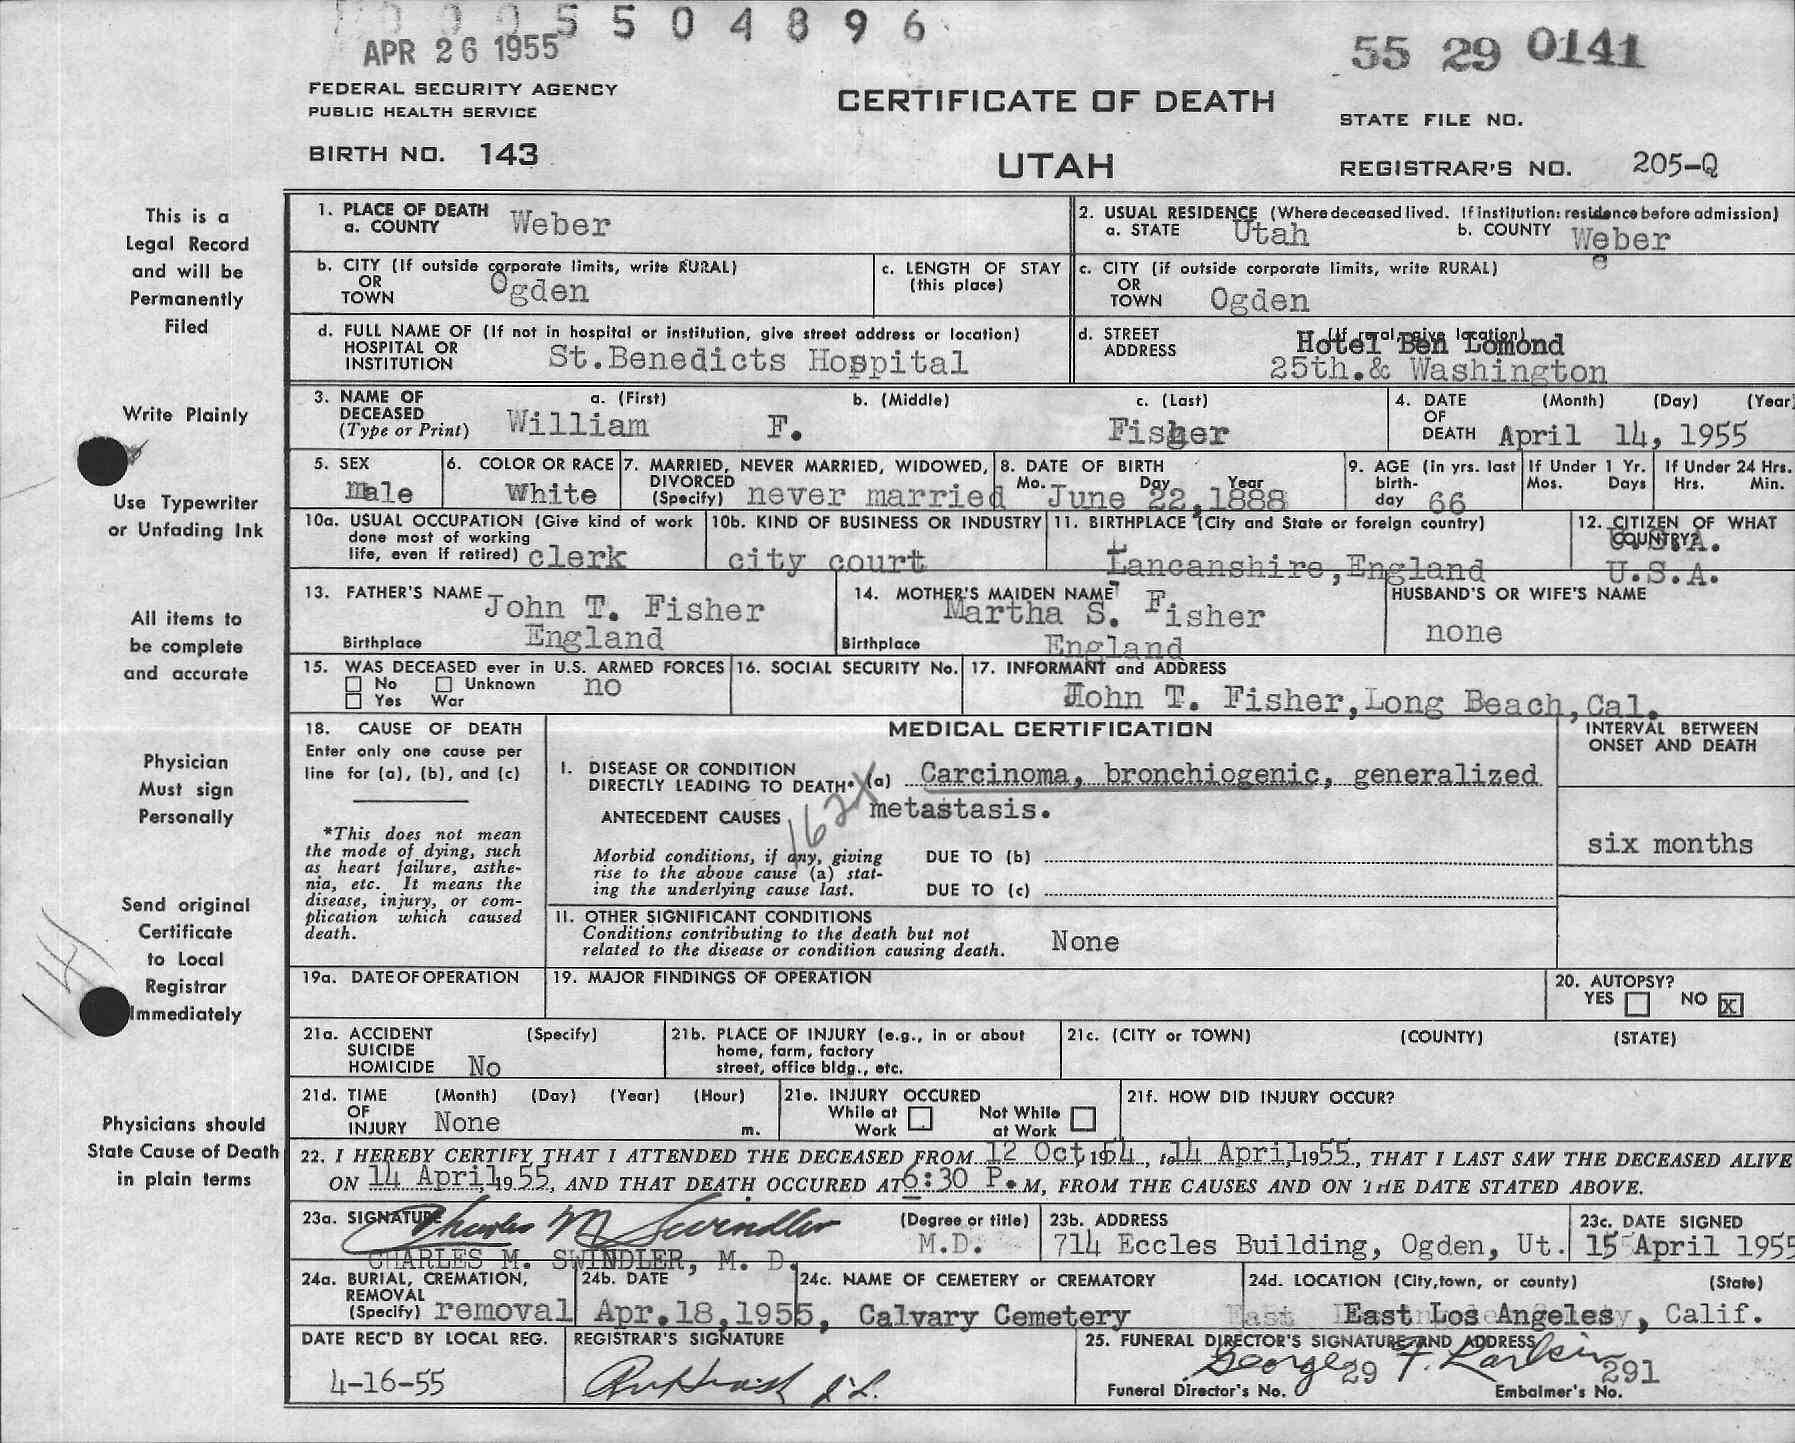 5 5 0 4 8 9 6
APR 26 1955
55 29 0141
FEDERAL SECURITY AGENCY
PUBLIC HEALTH SERVICE
CERTIFICATE OF DEATH
STATE FILE NO.
BIRTH NO. 143
UTAH
REGISTRAR'S NO. 205-Q
This is a
Legal Record
and will be
Permanently
Filed
Write Plainly
Use Typewriter
or Unfading Ink
All items to
be complete
and accurate
Physician
Must sign
Personally
Send original
Certificate
to Local
Registrar
Immediately
141
Physicians should
State Cause of Death
in plain terms
1. PLACE OF DEATH
a. COUNTY Weber
2. USUAL RESIDENCE (Where deceased lived. If institution: residence before admission)
a. STATE Utah b. COUNTY Weber
b. CITY (If outside corporate limits, write RURAL)
OR
TOWN Ogden
c. LENGTH OF STAY
(this place)
c. CITY (if outside corporate limits, write RURAL)
OR
TOWN Ogden
d. FULL NAME OF (If not in hospital or institution, give street address or location)
HOSPITAL OR
INSTITUTION St.Benedicts Hospital
d. STREET (If rural, give location)
ADDRESS Hotel Ben Lomond
25th.& Washington
3. NAME OF a. (First) b. (Middle) c. (Last)
DECEASED
(Type or Print) William F. Fisher
4. DATE (Month) (Day) (Year)
OF
DEATH April 14, 1955
5. SEX
Male
6. COLOR OR RACE
White
7. MARRIED, NEVER MARRIED, WIDOWED,
DIVORCED
(Specify) never married
8. DATE OF BIRTH
Mo. Day Year
June 22,1888
9. AGE (in yrs. last
birth-
day 66
If Under 1 Yr.
Mos. Days
If Under 24 Hrs.
Hrs. Min.
10a. USUAL OCCUPATION (Give kind of work
done most of working
life, even if retired) clerk
10b. KIND OF BUSINESS OR INDUSTRY
city court
11. BIRTHPLACE (City and State or foreign country)
Lancanshire,England
12. CITIZEN OF WHAT
COUNTRY?
U.S.A.
U.S.A.
13. FATHER'S NAME John T. Fisher
Birthplace England
14. MOTHER'S MAIDEN NAME
Martha S. Fisher
Birthplace England
HUSBAND'S OR WIFE'S NAME
none
15. WAS DECEASED ever in U.S. ARMED FORCES
No Unknown no
Yes War
16. SOCIAL SECURITY No.
17. INFORMANT and ADDRESS
John T. Fisher,Long Beach,Cal.
18. CAUSE OF DEATH
Enter only one cause per
line for (a), (b), and (c)
*This does not mean
the mode of dying, such
as heart failure, asthe-
nia, etc. It means the
disease, injury, or com-
plication which caused
death.
MEDICAL CERTIFICATION
INTERVAL BETWEEN
ONSET AND DEATH
I. DISEASE OR CONDITION
DIRECTLY LEADING TO DEATH* (a) Carcinoma, bronchiogenic, generalized
metastasis.
162X
ANTECEDENT CAUSES
six months
Morbid conditions, if any, giving
rise to the above cause (a) stat-
ing the underlying cause last.
DUE TO (b)
DUE TO (c)
II. OTHER SIGNIFICANT CONDITIONS
Conditions contributing to the death but not
related to the disease or condition causing death. None
19a. DATE OF OPERATION
19. MAJOR FINDINGS OF OPERATION
20. AUTOPSY?
YES NO X
21a. ACCIDENT (Specify)
SUICIDE
HOMICIDE No
21b. PLACE OF INJURY (e.g., in or about
home, farm, factory
street, office bldg., etc.
21c. (CITY or TOWN) (COUNTY) (STATE)
21d. TIME (Month) (Day) (Year) (Hour)
OF
INJURY None m.
21e. INJURY OCCURED
While at Work Not While at Work
21f. HOW DID INJURY OCCUR?
22. I HEREBY CERTIFY THAT I ATTENDED THE DECEASED FROM 12 Oct, 1954, to 14 April, 1955, THAT I LAST SAW THE DECEASED ALIVE
ON 14 April, 1955, AND THAT DEATH OCCURED AT 6:30 P.M, FROM THE CAUSES AND ON THE DATE STATED ABOVE.
23a. SIGNATURE Charles M Swindler (Degree or title)
M.D.
CHARLES M. SWINDLER, M. D.
23b. ADDRESS
714 Eccles Building, Ogden, Ut.
23c. DATE SIGNED
15 April 1955
24a. BURIAL, CREMATION,
REMOVAL
(Specify) removal
24b. DATE
Apr.18,1955,
24c. NAME OF CEMETERY or CREMATORY
Calvary Cemetery
24d. LOCATION (City,town, or county) (State)
East Los Angeles, Calif.
DATE REC'D BY LOCAL REG.
4-16-55
REGISTRAR'S SIGNATURE
25. FUNERAL DIRECTOR'S SIGNATURE AND ADDRESS
George F. Larkin
Funeral Director's No. 29 Embalmer's No. 291